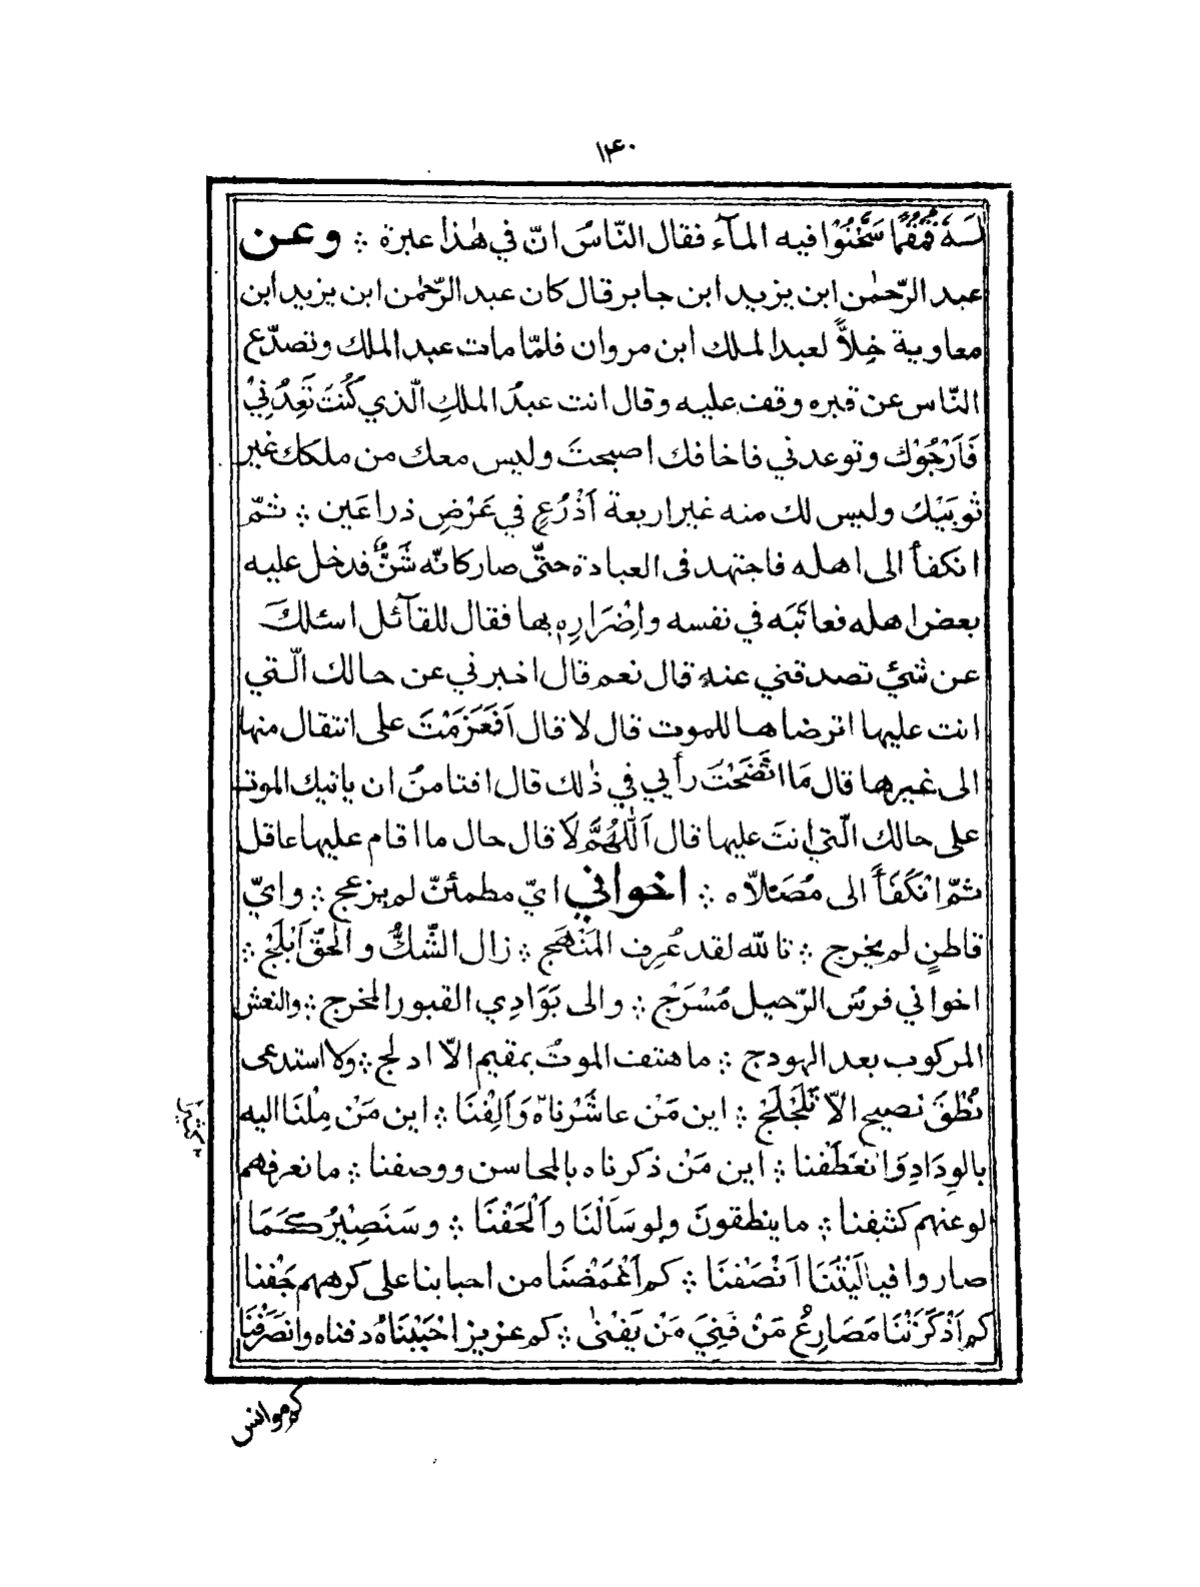 ۱۴۰
لـه قُمْقُمًا سَخَّنُوْا فيه المآء فقال النّاسُ انّ في هٰذا عبرة ؞ وعن
عبد الرّحمٰن ابن يزيد ابن جابر قال كان عبد الرّحمٰن ابن يزيد ابن
معاوية خِلاًّ لعبد الملك ابن مروان فلمّا مات عبد الملك وتصدّع
النّاس عن قبره وقف عليه وقال انت عبدُ الملكِ الّذي كُنْتَ تَعِدُنِيْ
فَاَرْجُوْك وتوعدني فاخافك اصبحتَ وليس معك من ملكك غير
ثوبَيْك وليس لك منه غير اربعة اَذْرُعٍ في عَرْضِ ذراعَين ؞ ثمّ
انكفأ الى اهله فاجتهد في العبادة حتّى صار كانّه شَنٌّ فدخل عليه
بعض اهله فعاتَبَه في نفسه واِضْرَارِهٖ بها فقال للقآئل اسئلك
عن شئ تصدقني عنه قال نعم قال اخبرني عن حالك الّتي
انت عليها اترضاها للموت قال لا قال اَفَعَزَمْتَ على انتقال منها
الى غيرها قال مَا انْتَصَحْتَ رأيي في ذٰلك قال افتامنُ ان ياتيك الموت
على حالك الّتي انتَ عليها قال اَللّٰهُمَّ لَا قال حال ما اقام عليها عاقل
ثمّ انْكَفَأَ الى مُصَلّاه ؞ اخواني ايّ مطمئنّ لم يزعج ؞ وايّ
قاطنٍ لم يخرج ؞ تاللّه لقد عُرِف المَنْهَج ؞ زال الشّكُّ والحقّ اَبْلَجْ ؞
اخواني فرسُ الرّحيل مُسْرَجْ ؞ والى بَوَادِي القبور المخرج ؞ والنعش
المركوب بعد الهودج ؞ ما هتف الموتُ بمقيم الّا ادلج ؞ ولا استدعى
نُطْقَ نصيح الاّ تَلَجْلَجْ ؞ اين مَنْ عاشَرْناهٗ وَاَلِفْنَا ؞ اين مَنْ مِلْنَا اليه
كثيرا
بالوِدَادِ وَانْعَطَفْنا ؞ اين مَنْ ذكرناه بالمحاسن ووصفنا ؞ ما نعرفهم
لو عنهم كشفنا ؞ ما ينطقونَ ولو سَاَلْنَا وَاَلْحَفْنَا ؞ وسَنَصِيْرُ كَمَا
صاروا فيا لَيْتَنَا اَنْصَفْنَا ؞ كم اَغْمَضْنَا من احبابنا على كرههم جَفْنا
كم اَذْكَرَتْنَا مَصَارِعُ مَنْ فَنِيَ مَنْ يَفْنٰى ؞ كم عزيزٍ احْبَبْنَاهُ دفناه وانصَرَفْنَا
كم موانس